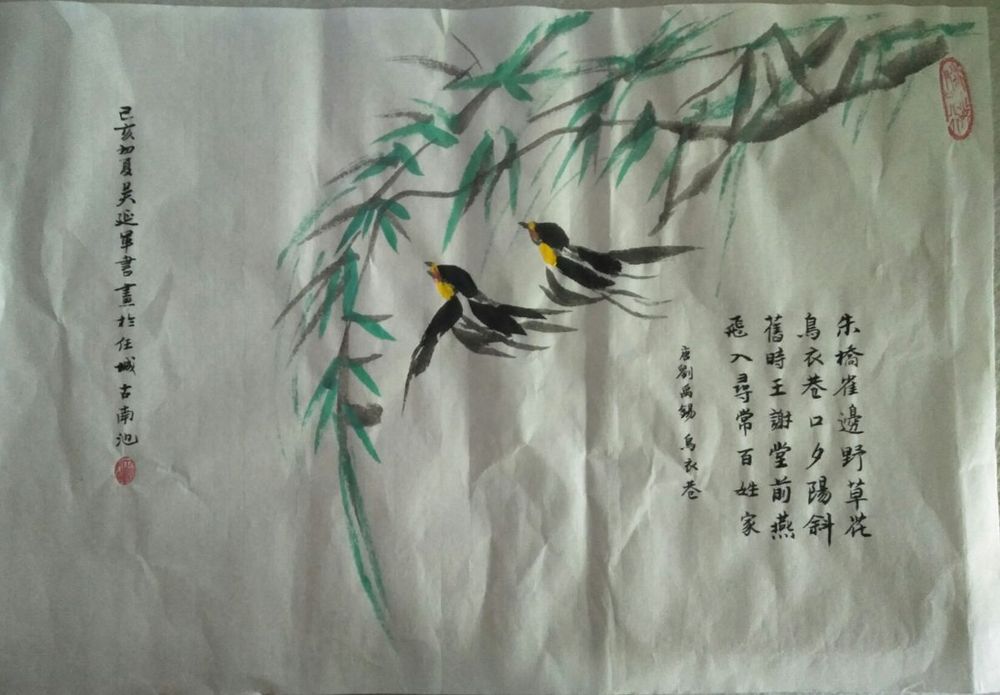 朱橋雀邊野草花
烏衣巷口夕陽斜
舊時王謝堂前燕
飛入尋常百姓家
唐劉禹錫 烏衣巷
己亥初夏吴延軍書畫於任城古南池